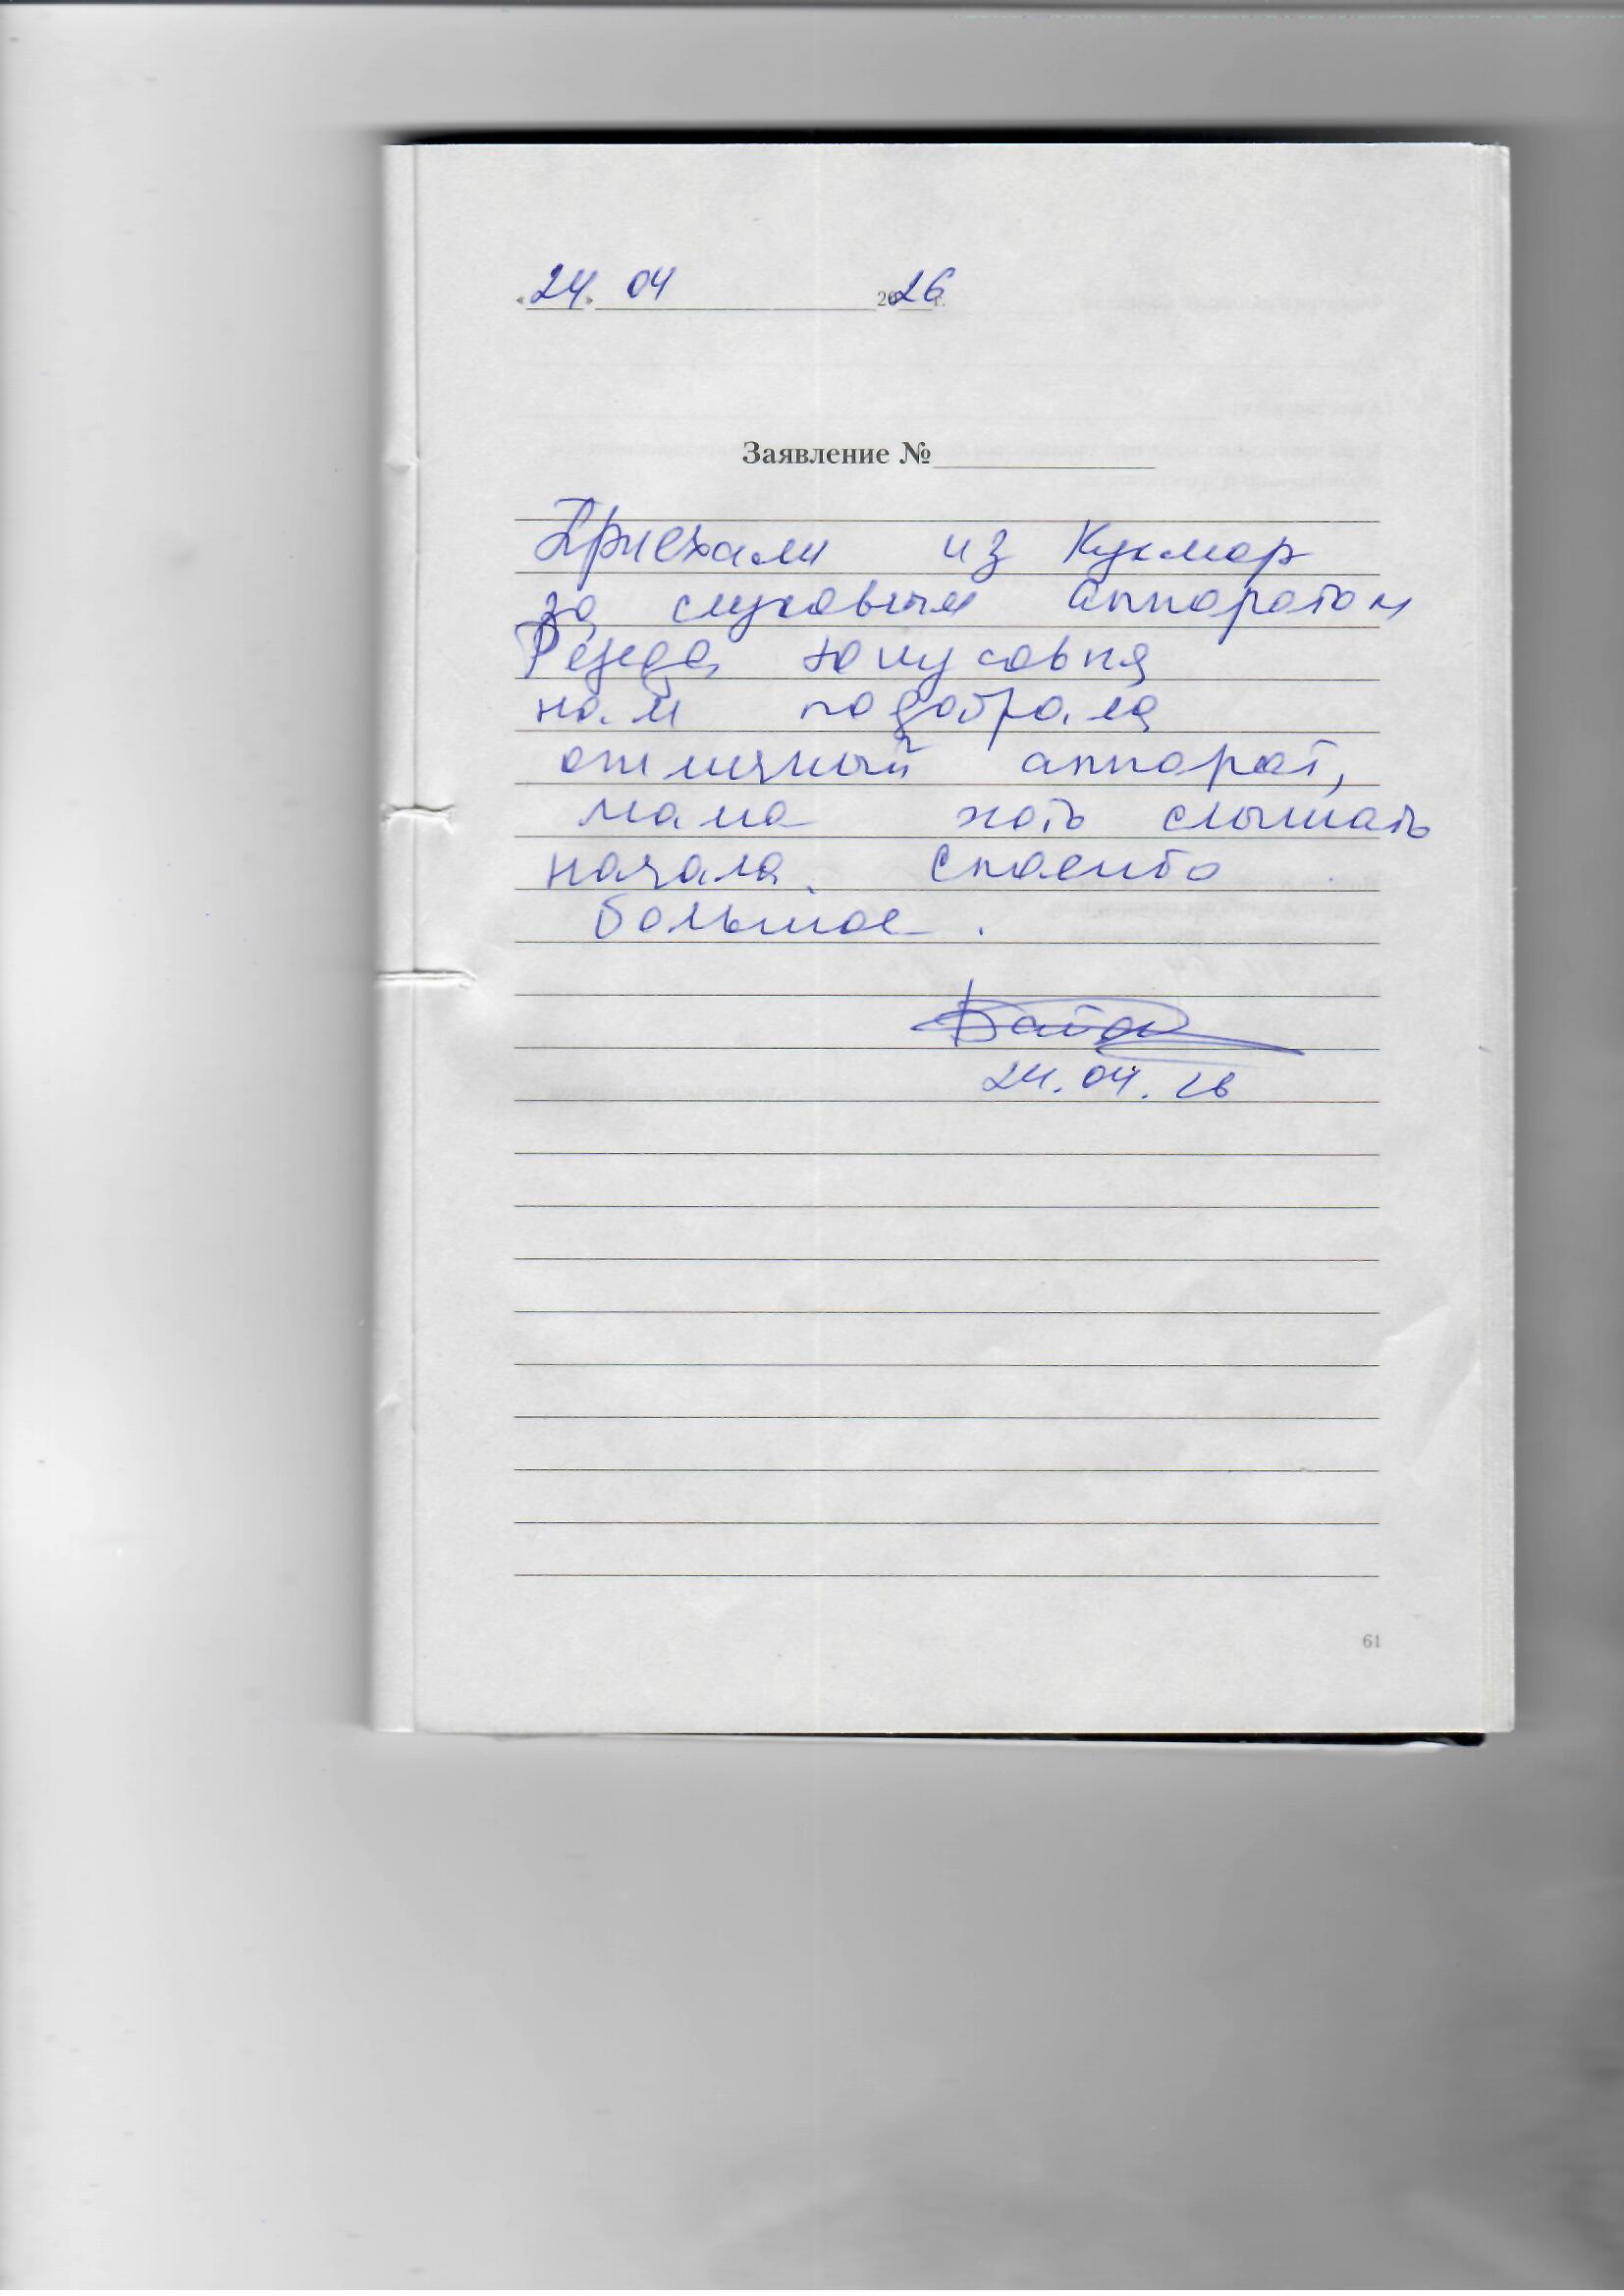 «24» 04 2026 г.
Заявление №
Приехали из Кукмор
за слуховым аппаратом
Резеда Юнусовна
нам подобрала
отличный аппарат,
мама хоть слышать
начала. Спасибо
большое.
24.04.26
61